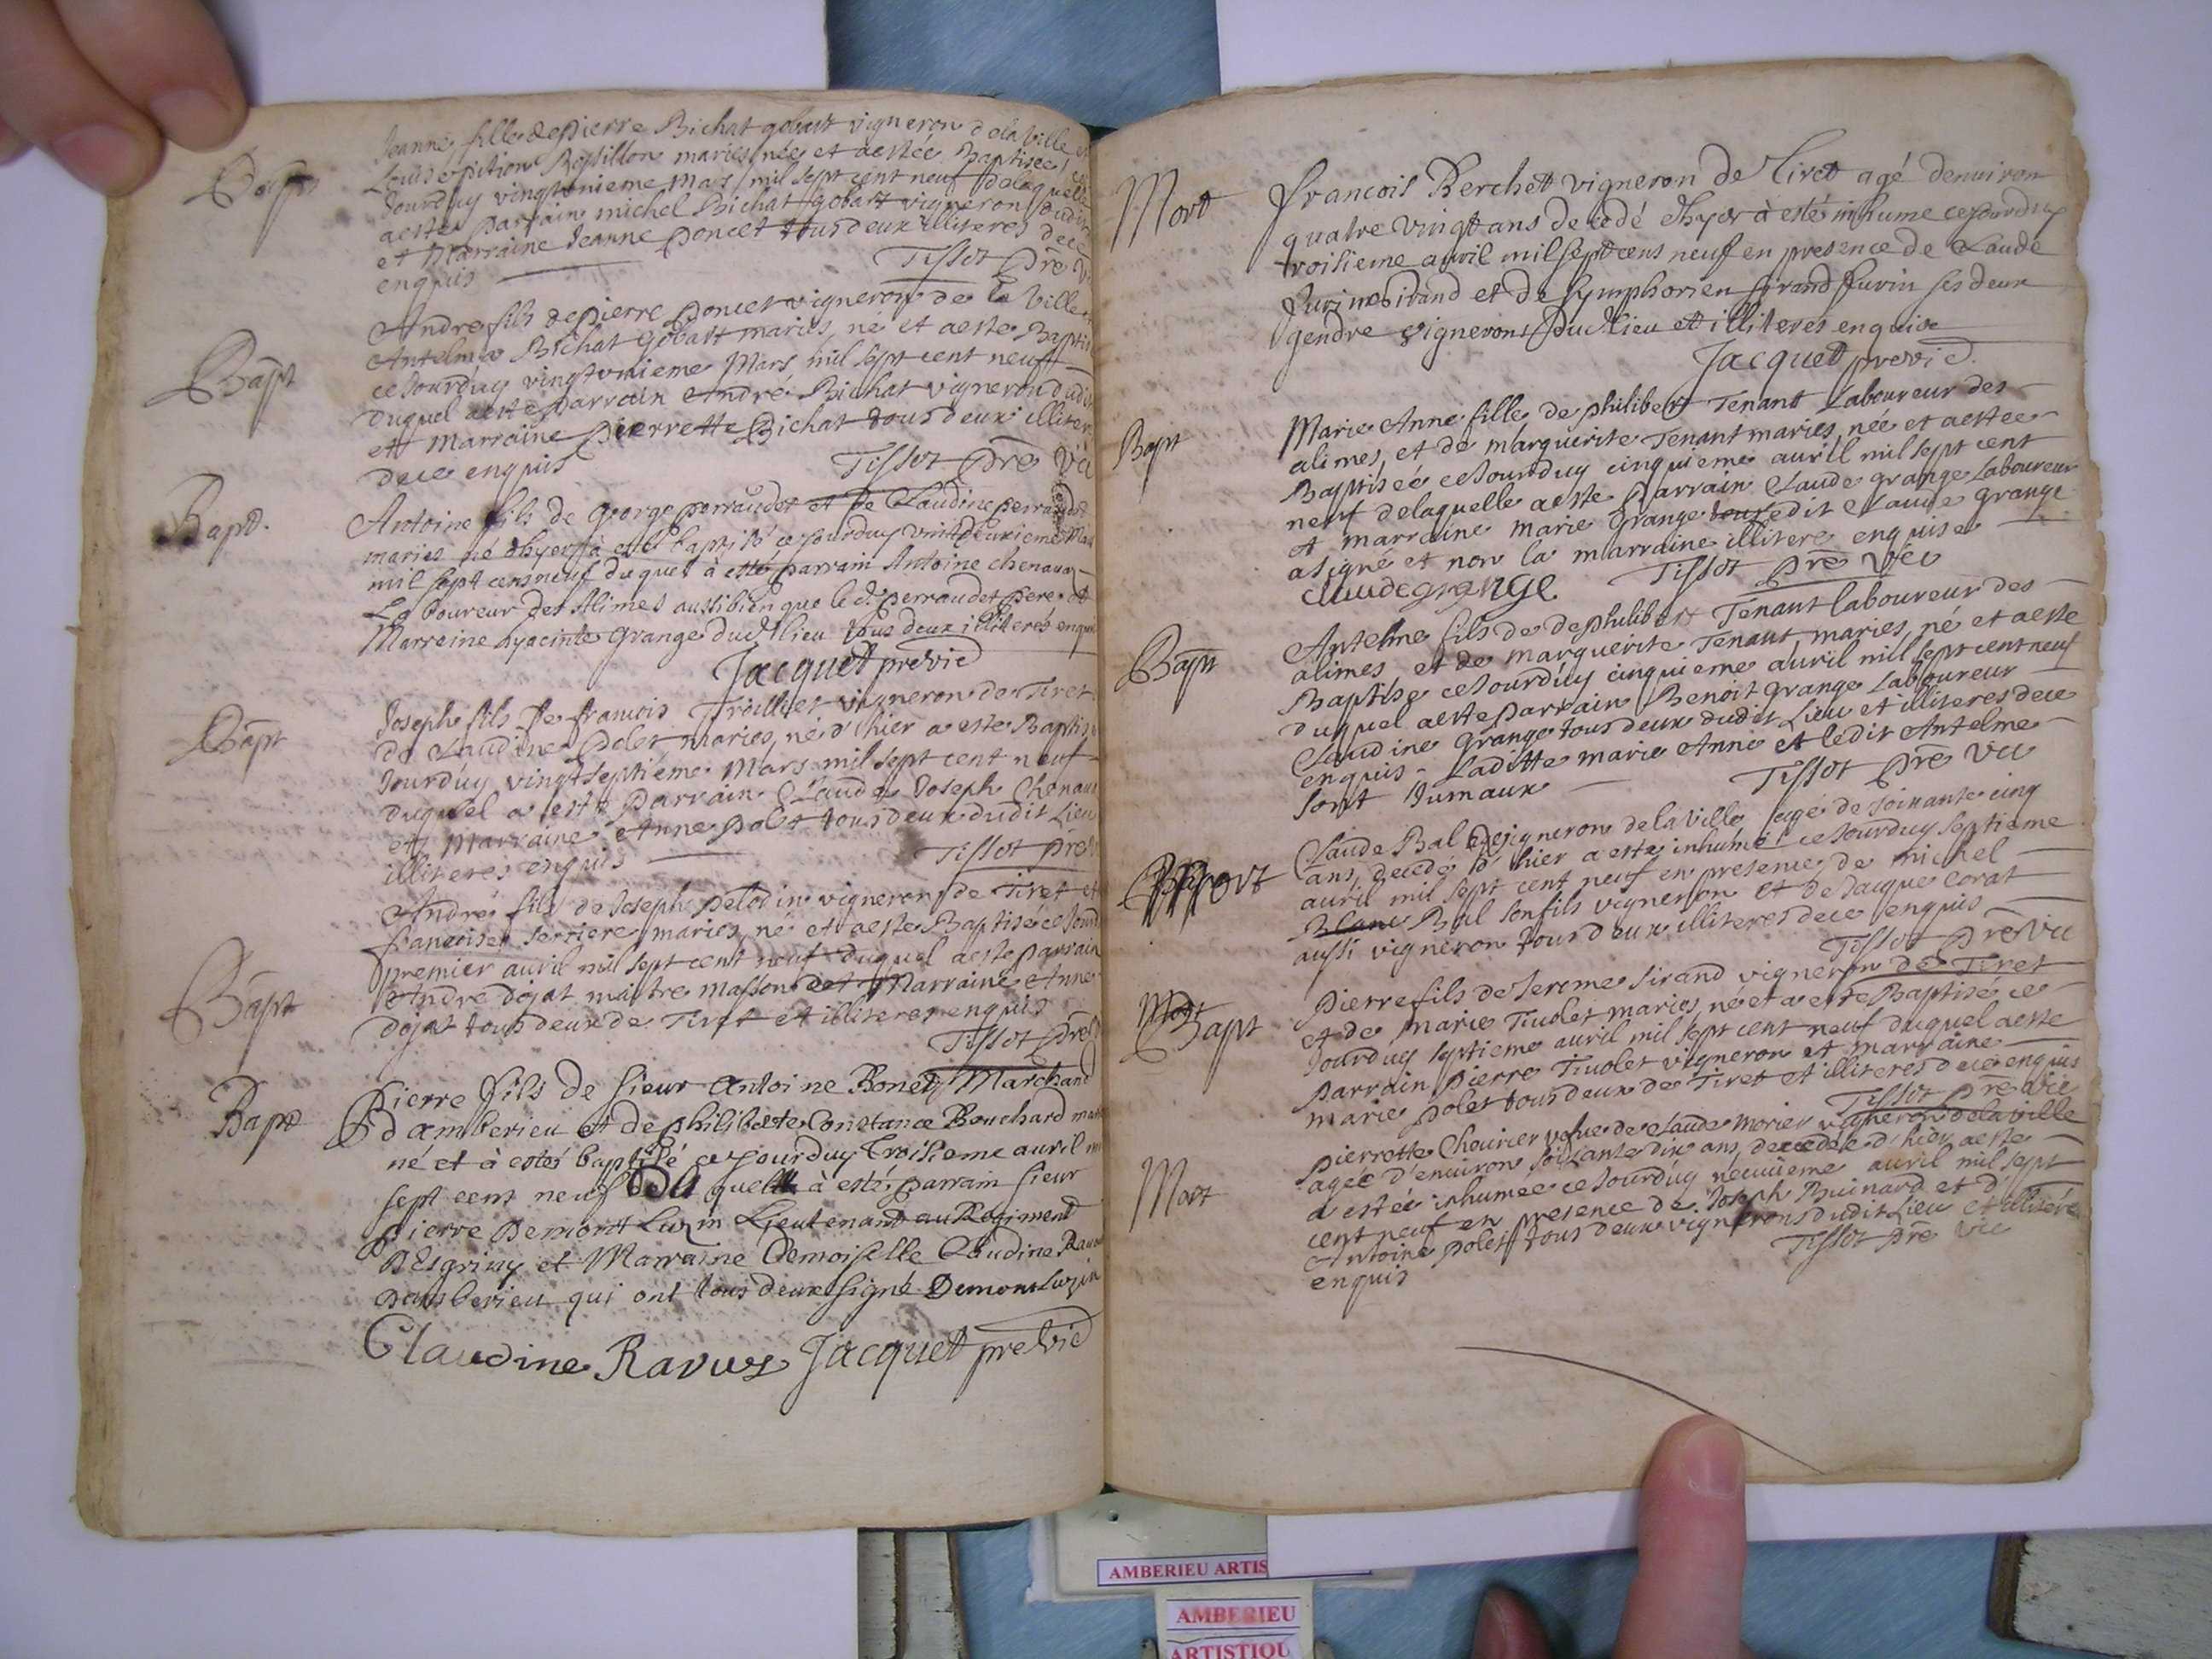 Bapt
Jeanne fille de pierre Bichat gobart vigneron de la ville et
Louise pition Rossillon maries née et aestée Baptisée ce
Jourduy vingtunieme Mars mil sept cent neuf delaquelle
aeste parrain michel Bichat gobart vigneron dudit
et Marraine Jeanne poncet tous deux illiteres dece
enquis
Tissot pre vi
Bapt
Andre fils de pierre poncet vigneron de la Ville et
Antelma Bichat Gobart maries, né et aeste Baptisé
ceJourduy vingtunieme Mars mil sept cent neuf
duquel aeste parrain André Bichat vigneron dudit
et Marraine pierrette Bichat tous deux illiteres
dece enquis
Tissot pre vic
Bapt.
Antoine fils de George perraudet et de Claudine perraudet
maries né dhyer à esté baptisé cejourduy vintdeuxieme Mars
mil sept cens neuf duquel à esté parrain Antoine chenavaz
Laboureur des Alimes aussi bien que le d. perraudet pere et
Marraine hyacinte Grange dud. lieu tous deux illiterés enquis
Jacquet previc
Bapt
Joseph fils de francois Trilliet vigneron de Tiret
de Claudine polet maries, né d'hier a este Baptisé
Jourduy vingt septieme Mars mil sept cent neuf
duquel a esté parrain Claude Joseph Chenavaz
et Marraine Anne polet tous deux dudit Lieu
illiteres enquis
Tissot pre
Bapt
André fils de Joseph pelodin vigneron de Tiret et
francoise serriere maries, né et aeste Baptisé ceJour
premier auril mil sept cent neuf duquel aeste parrain
André dojat maistre masson et Marraine Anne
dojat tous deux de Tiret et illiteres enquis
Tissot pre
Bapt
Pierre fils de sieur Antoine Bonet Marchand
d'amberieu et de philiberte Constance Bouchard maries
né et à esté baptisé cejourduy Troisieme auril mil
sept cent neuf Du quel à esté parrain sieur
pierre Demont Luzin Lieutenant au Regiment
DEsgriny et Marraine Demoiselle Claudine Ravus
Damberieu qui ont tous deux signé Demontluzin
Claudine Ravus Jacquet previc
Mort
francois Berchet vigneron de Tiret agé denuiron
quatre vingt ans decedé dhyer à esté inhume cejourduy
troisieme auril mil sept cens neuf en presence de Claude
Jurine Sirand et de Symphorien Sirand Jurin ses deux
gendre vignerons dud. lieu et illiteres enquise
Jacquet previc.
Bapt
Marie Anne fille de philibert Tenant Laboureur des
alimes, et de marguerite Tenant maries, née et aestee
Baptisée ceJourduy cinquieme auril mil sept cent
neuf delaquelle aeste parrain Claude grange Laboureur
et marraine marie grange ledit Claude grange
asigné et non la marraine illitere enquise
claude grange Tissot pre vic
Bapt
Antelme fils de de philibert Tenant laboureur des
alimes et de marguerite Tenant maries, né et aeste
Baptise ceJourduy cinquieme auril mil sept cent neuf
duquel aeste parrain Benoit grange Laboureur
Claudine Grange tous deux dudit Lieu et illiteres dece
enquis - Laditte marie Anne et ledit Antelme
sont Jumaux
Tissot pre vic
Mort
Claude Bal vigneron de la Ville agé de soixante cinq
ans, decedé d'hier a esté inhumé ceJourduy septieme
auril mil sept cent neuf en presence de michel
Bal son fils vigneron et de Jacque Corat
aussi vigneron tous deux illiteres dece enquis
Tissot pre vic
Mort
Bapt
pierre fils de Jerome Sirand vigneron de Tiret
et de marie Tivolet maries, né et a este Baptisé ce
Jourduy septieme auril mil sept cent neuf duquel aeste
parrain pierre Tivolet vigneron et marraine
marie polet tous deux de Tiret et illiteres dece enquis
Tissot pre vic
Mort
pierrette Cheurier vefue de Claude morier vigneron de la ville
agée d'enuiron soixante dix ans, decedée d'hier aeste
a estée inhumée ceJourduy neuuieme auril mil sept
cent neuf en presence de Joseph Buinard et d'
Antoine polet tous deux vignerons dudit Lieu et illiterés
enquis
Tissot pre vic
AMBERIEU ARTIS
AMBERIEU
ARTISTIQU